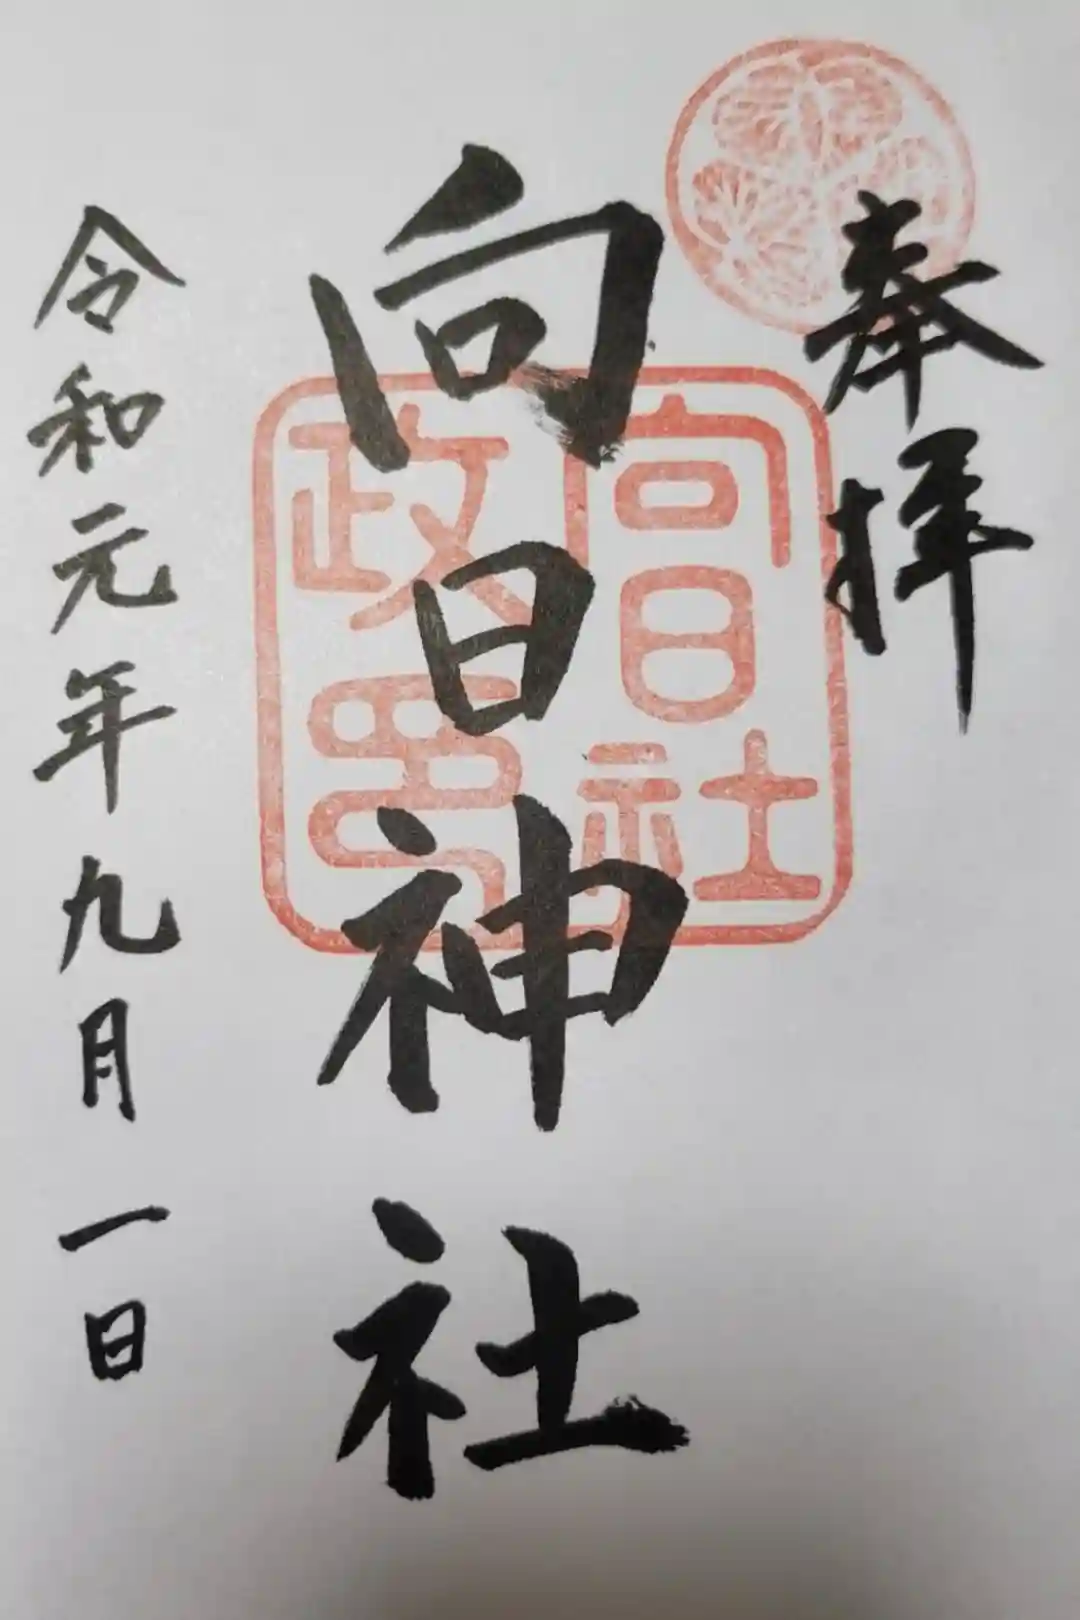 奉拝
向日神社
向日社政所
令和元年九月一日